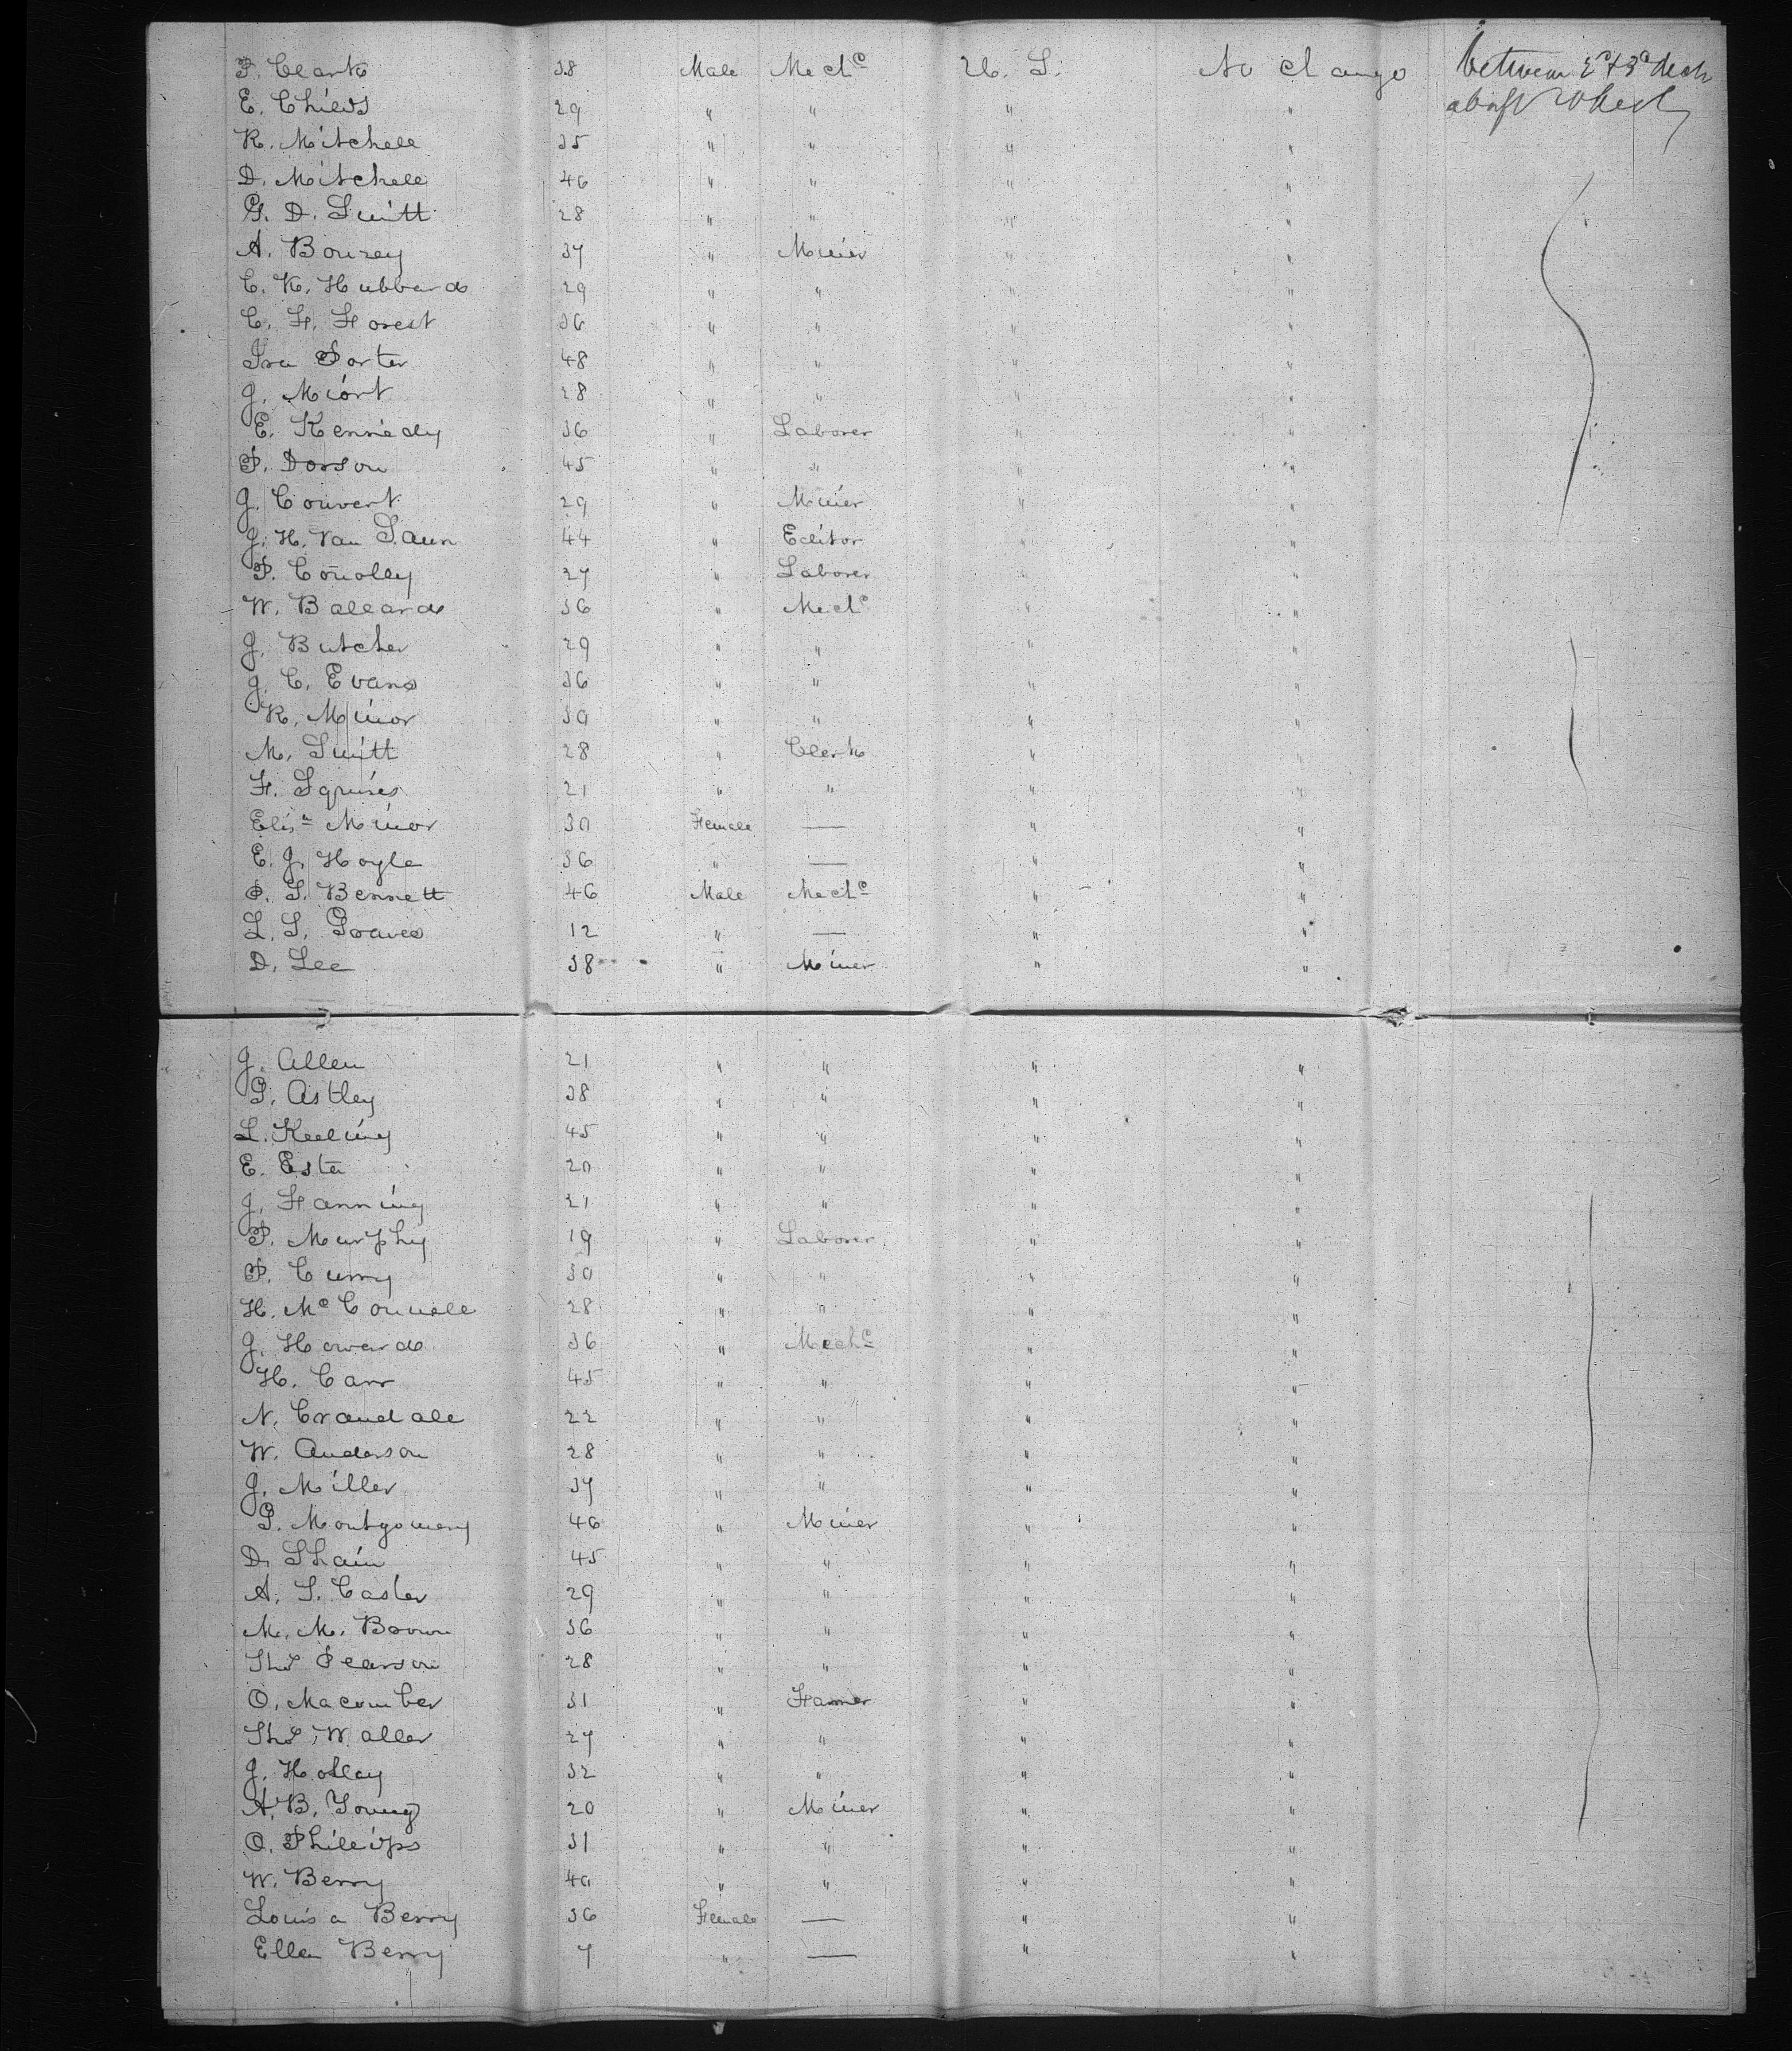 P. Clark 38 Male Mechc U. S. No change between 2d & 3d deck
E. Childs 29 " " " " abaft Wheel
R. Mitchell 35 " " " "
D. Mitchell 46 " " " "
G. D. Smith 28 " " " "
A. Bourey 37 " Miner " "
C. K. Hubbard 29 " " " "
C. F. Forest 36 " " " "
Ira Porter 48 " " " "
J. 28 " " " "
E. Kennedy 36 " Laborer " "
P. Dosson 45 " " " "
J. Convert 29 " Miner " "
J. H. Van Saun 44 " Editor " "
P. Conolly 27 " Laborer " "
W. Ballard 36 " Mechc " "
J. Butcher 29 " " " "
J. C. Evans 36 " " " "
R. Minor 30 " " " "
M. Smith 28 " Clerk " "
F. Squires 21 " " " "
Elisa Minor 30 Female — " "
E. J. Hoyle 36 " — " "
P. S. Bennett 46 Male Mechc " "
L. S. 12 " — " "
D. Lee 38 " Miner " "
J. Allen 21 " " " "
P. Astley 38 " " " "
L. Keeling 45 " " " "
E. Este 20 " " " "
J. Fanning 21 " " " "
P. Murphy 19 " Laborer " "
P. Curry 30 " " " "
H. McConnell 28 " " " "
J. Howard 36 " Mechc " "
H. Carr 45 " " " "
N. Crandall 22 " " " "
W. Anderson 28 " " " "
J. Miller 37 " " " "
P. Montgomery 46 " Miner " "
D. Shain 45 " " " "
A. S. Casler 29 " " " "
M. M. Brown 36 " " " "
Thos Pearson 28 " " " "
O. Macomber 31 " Farmer " "
Thos Waller 27 " " " "
J. Holley 32 " " " "
A. B. Young 20 " Miner " "
O. Phillips 31 " " " "
W. Berry 40 " " " "
Louisa Berry 36 Female — " "
Ellen Berry 7 " — " "